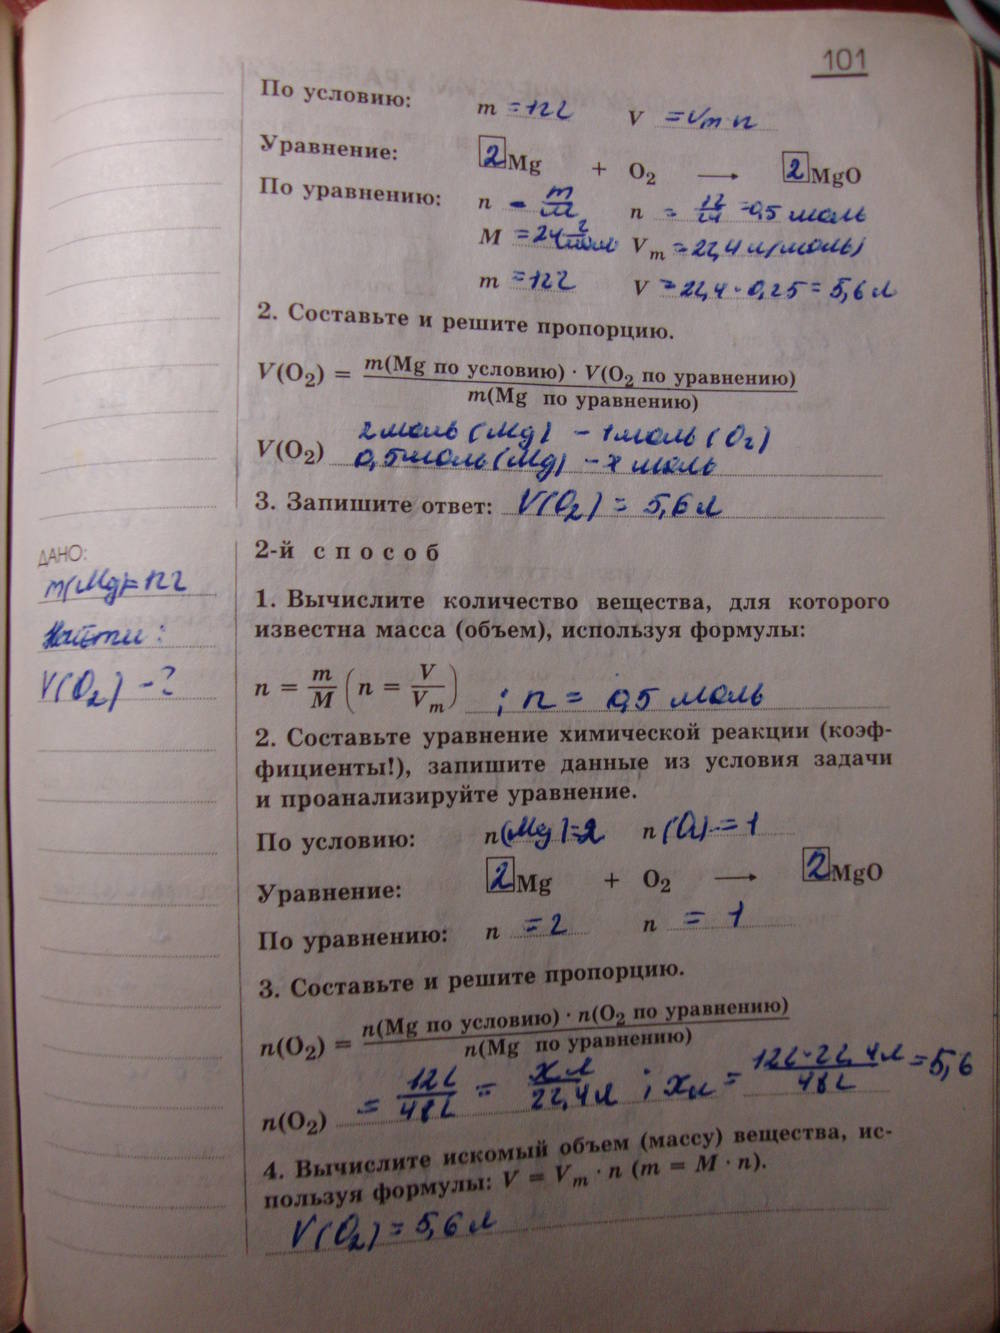 101
По условию: m = 12 г V = Vm n
Уравнение: 2 Mg + O₂ → 2 MgO
По уравнению: n = m/M n = 12/24 = 0,5 моль
M = 24 г/моль Vm = 22,4 л/моль)
m = 12 г V = 22,4 · 0,25 = 5,6 л
2. Составьте и решите пропорцию.
V(O₂) = m(Mg по условию) · V(O₂ по уравнению) / m(Mg по уравнению)
2 моль (Mg) – 1 моль (O₂)
V(O₂) 0,5 моль (Mg) – x моль
3. Запишите ответ: V(O₂) = 5,6 л
ДАНО:
m(Mg)=12 г
Найти:
V(O₂) – ?
2-й способ
1. Вычислите количество вещества, для которого
известна масса (объем), используя формулы:
n = m/M (n = V/Vm) ; n = 0,5 моль
2. Составьте уравнение химической реакции (коэф-
фициенты!), запишите данные из условия задачи
и проанализируйте уравнение.
По условию: n(Mg)=2 n = 1
Уравнение: 2 Mg + O₂ → 2 MgO
По уравнению: n = 2 n = 1
3. Составьте и решите пропорцию.
n(O₂) = n(Mg по условию) · n(O₂ по уравнению) / n(Mg по уравнению)
n(O₂) = 12 г/48 г = x л/22,4 л ; x л = 12 г · 22,4 л/48 г = 5,6
4. Вычислите искомый объем (массу) вещества, ис-
пользуя формулы: V = Vm · n (m = M · n).
V(O₂) = 5,6 л